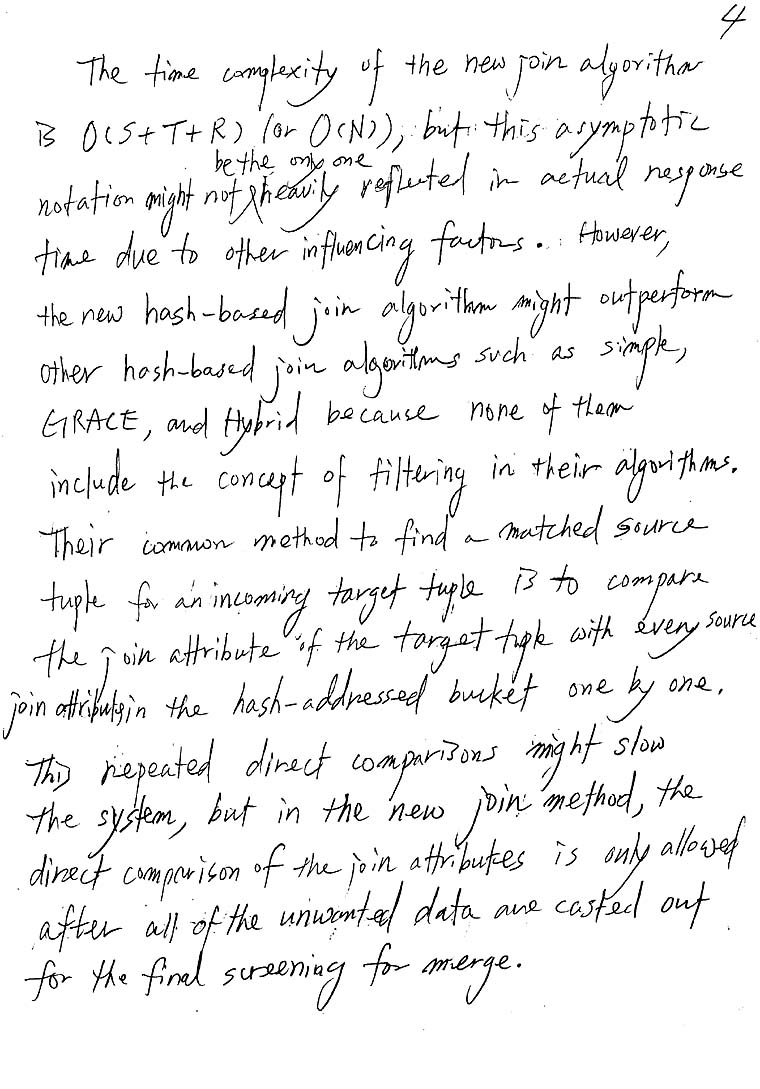 4
The time complexity of the new join algorithm
is O(S+T+R) (or O(N)), but this asymptotic
be the only one
notation might not heavily reflected in actual response
time due to other influencing factors. However,
the new hash-based join algorithm might outperform
other hash-based join algorithms such as simple,
GRACE, and Hybrid because none of them
include the concept of filtering in their algorithms.
Their common method to find a matched source
tuple for an incoming target tuple is to compare
the join attribute of the target tuple with every source
join attributes in the hash-addressed bucket one by one.
This repeated direct comparisons might slow
the system, but in the new join method, the
direct comparison of the join attributes is only allowed
after all of the unwanted data are casted out
for the final screening for merge.